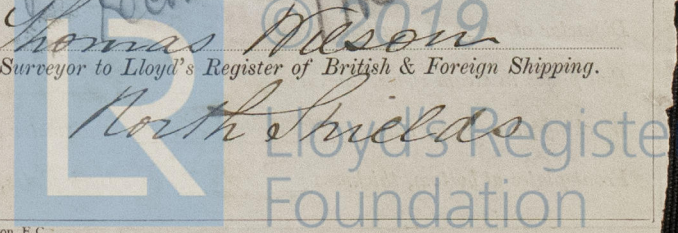 © 2019
Thomas Wilson
Surveyor to Lloyd's Register of British & Foreign Shipping.
North Shields
LR
Lloyd's Registe
Foundation
on, E.C.